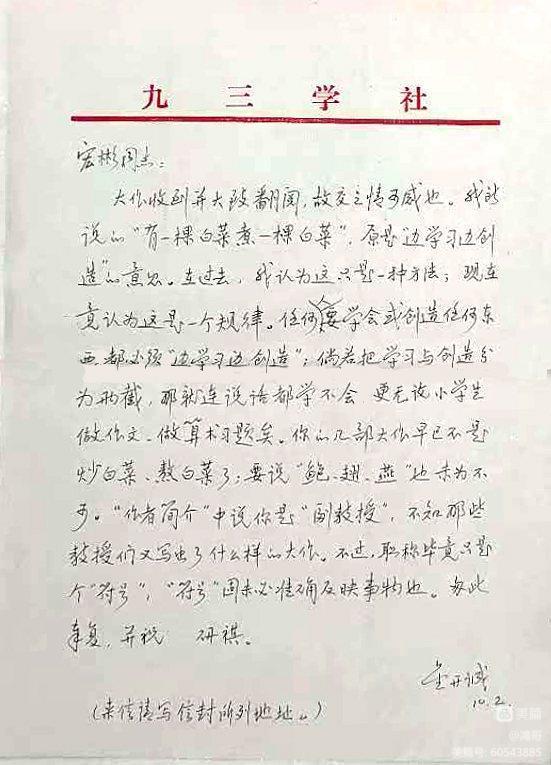 九三学社
宏彬同志：
大作收到并大致翻阅，故交之情可感也。我所
说的“有一棵白菜煮一棵白菜”，原是“边学习边创
造”的意思。在过去，我认为这只是一种方法；现在
竟认为这是一个规律。任何人要学会或创造任何东
西都必须“边学习边创造”；倘若把学习与创造分
为两截，那就连说话都学不会，更无论小学生
做作文、做算术习题矣。你的几部大作早已不是
炒白菜、熬白菜了；要说“鲍、翅、燕”也未为不
可。“作者简介”中说你是“副教授”，不知那些
教授们又写出了什么样的大作。不过，职称毕竟只是
个“符号”，“符号”固未必准确反映事物也。专此
奉复，并祝 研祺。
金开诚
10.2
（来信请写信封所列地址。）
美篇
@鸿哥
美篇号：60543885